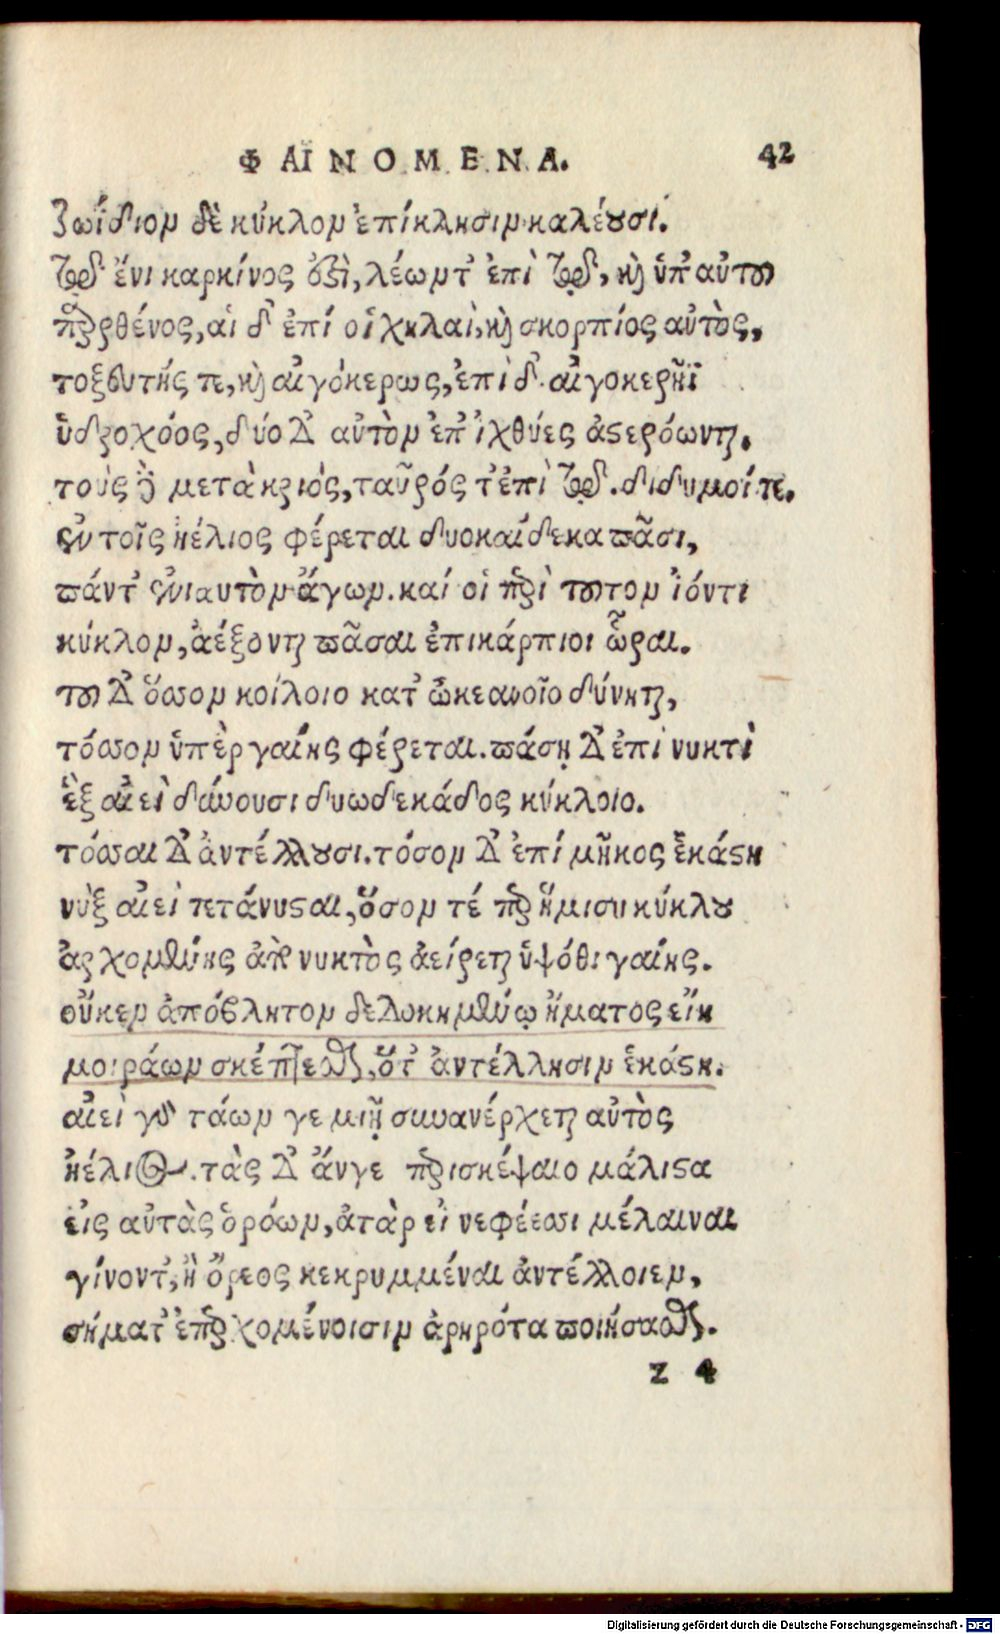 ΦΑΙΝΟΜΕΝΑ. 42
ζωΐδιον δὲ κύκλον ἐπίκλησιν καλέουσί.
τῷδ' ἔνι καρκίνος ὀξὶ, λέων τ' ἐπὶ τῷδε, καὶ ὑπ' αὐτον
παρθένος, αἱ δ' ἐπί οἱ χηλαὶ, καὶ σκορπίος αὐτὸς,
τοξευτής τε, καὶ αἰγόκερως, ἐπὶ δ' αἰγοκερῆϊ
ὑδροχόος, δύο δ' αὐτὸν ἐπ' ἰχθύες ἀστερόωνται.
τοὺς δὲ μετὰ κριός, ταῦρός τ' ἐπὶ τῷδε. διδυμοί τε.
ἐν τοῖς ἠέλιος φέρεται δυοκαίδεκα πᾶσι,
πάντ' ἐνιαυτὸν ἄγων. καί οἱ περὶ τοῦτον ἰόντι
κύκλον, ἀέξονται πᾶσαι ἐπικάρπιοι ὧραι.
τοῦ δ' ὅσσον κοίλοιο κατ' ὠκεανοῖο δύνηται,
τόσσον ὑπὲρ γαίης φέρεται. πάσῃ δ' ἐπὶ νυκτὶ
ἓξ αἰεὶ δύνουσι δυωδεκάδος κύκλοιο.
τόσσαι δ' ἀντέλλουσι. τόσον δ' ἐπί μῆκος ἑκάστη
νὺξ αἰεὶ πετάνυσται, ὅσον τέ περ ἥμισυ κύκλου
ἀρχομένης ἀπὸ νυκτὸς ἀείρεται ὑψόθι γαίης.
οὔ κεν ἀπόβλητον δεδοκημένῳ ἤματος εἴη
μοιράων σκέπτεσθαι, ὅτ' ἀντέλλησιν ἑκάστη.
αἰεὶ γὰρ τάων γε μιῇ συνανέρχεται αὐτὸς
ἠέλιος. τὰς δ' ἄν γε περισκέψαιο μάλιστα
εἰς αὐτὰς ὁρόων, ἀτὰρ εἰ νεφέεσσι μέλαιναι
γίνοντ', ἢ ὄρεος κεκρυμμέναι ἀντέλλοιεν,
σήματ' ἐπερχομένοισιν ἀρηρότα ποιήσασθαι.
z 4
Digitalisierung gefördert durch die Deutsche Forschungsgemeinschaft - DFG